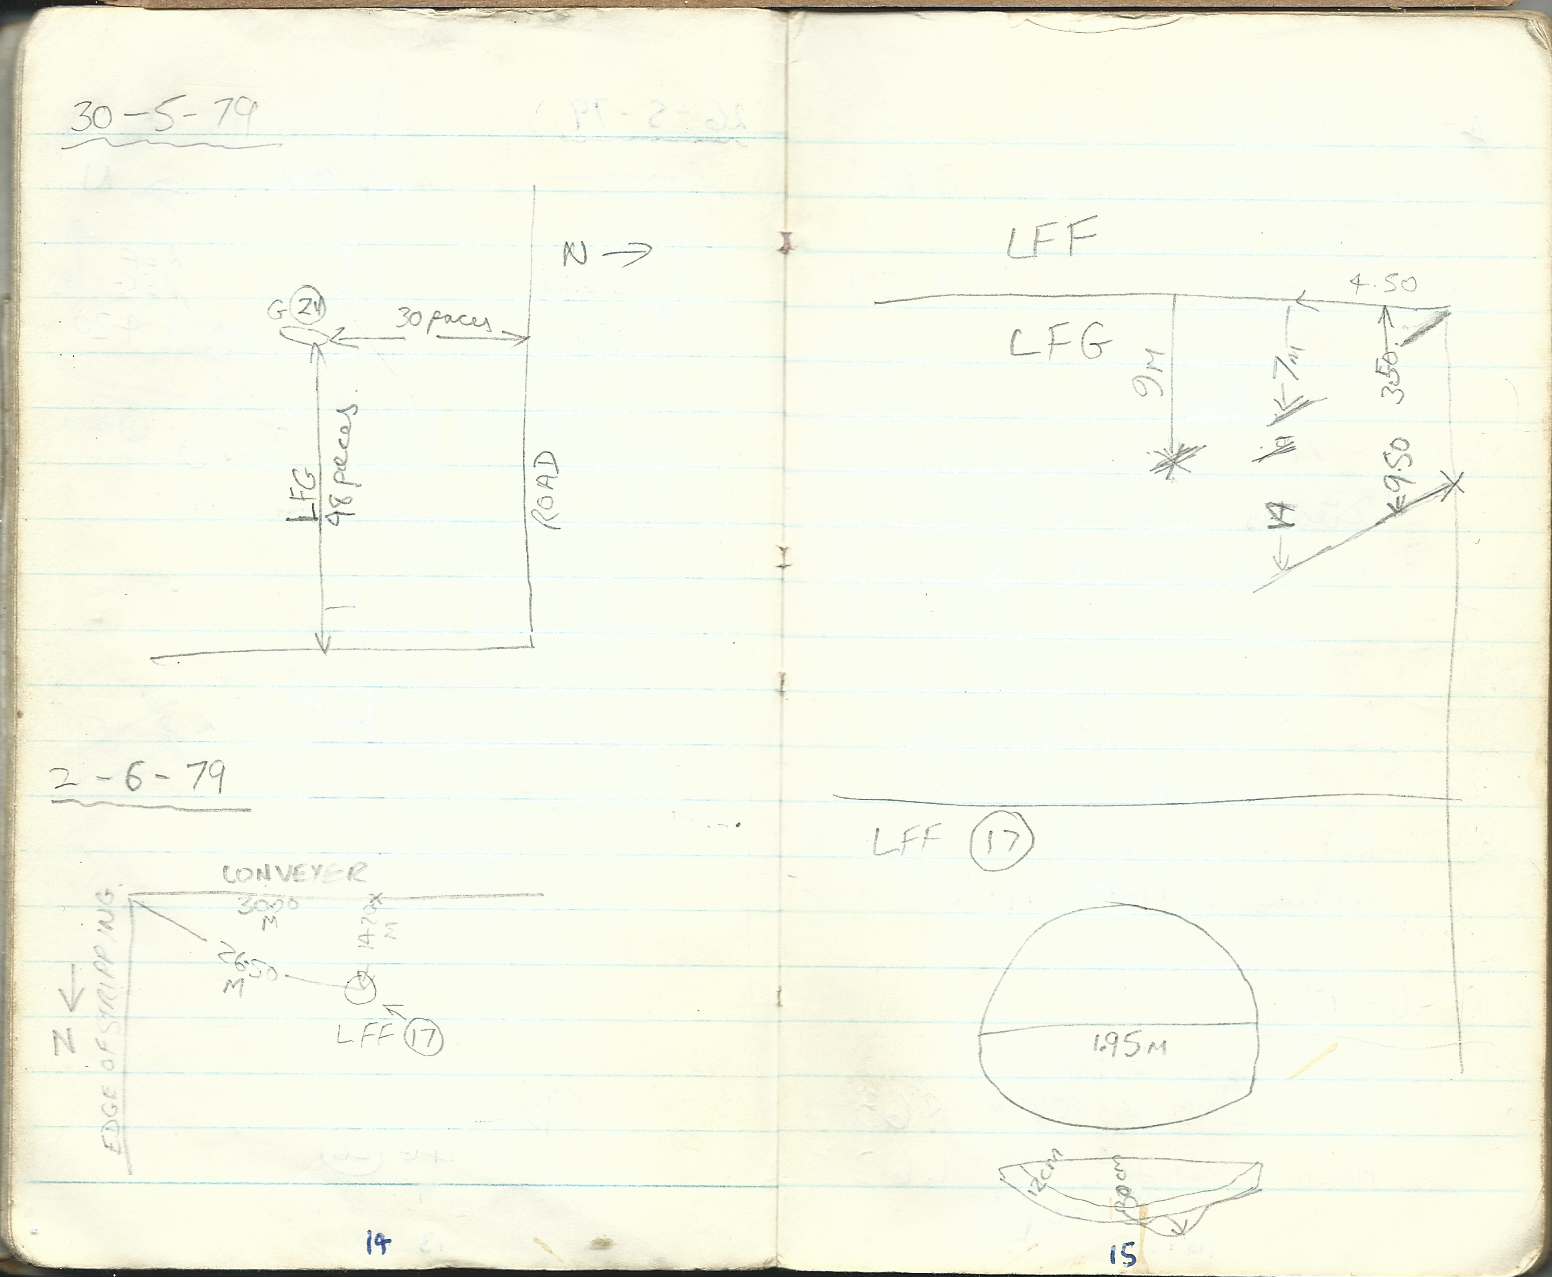 30-5-79
N →
G 24
30 paces
LFG
48 paces
ROAD
2-6-79
CONVEYER
3000
M
1420
M
2650
M
LFF 17
N
EDGE OF STRIPPING
14
LFF
4.50
LFG
9M
7M
350
14
9.50
LFF 17
1.95M
12cm
30cm
15